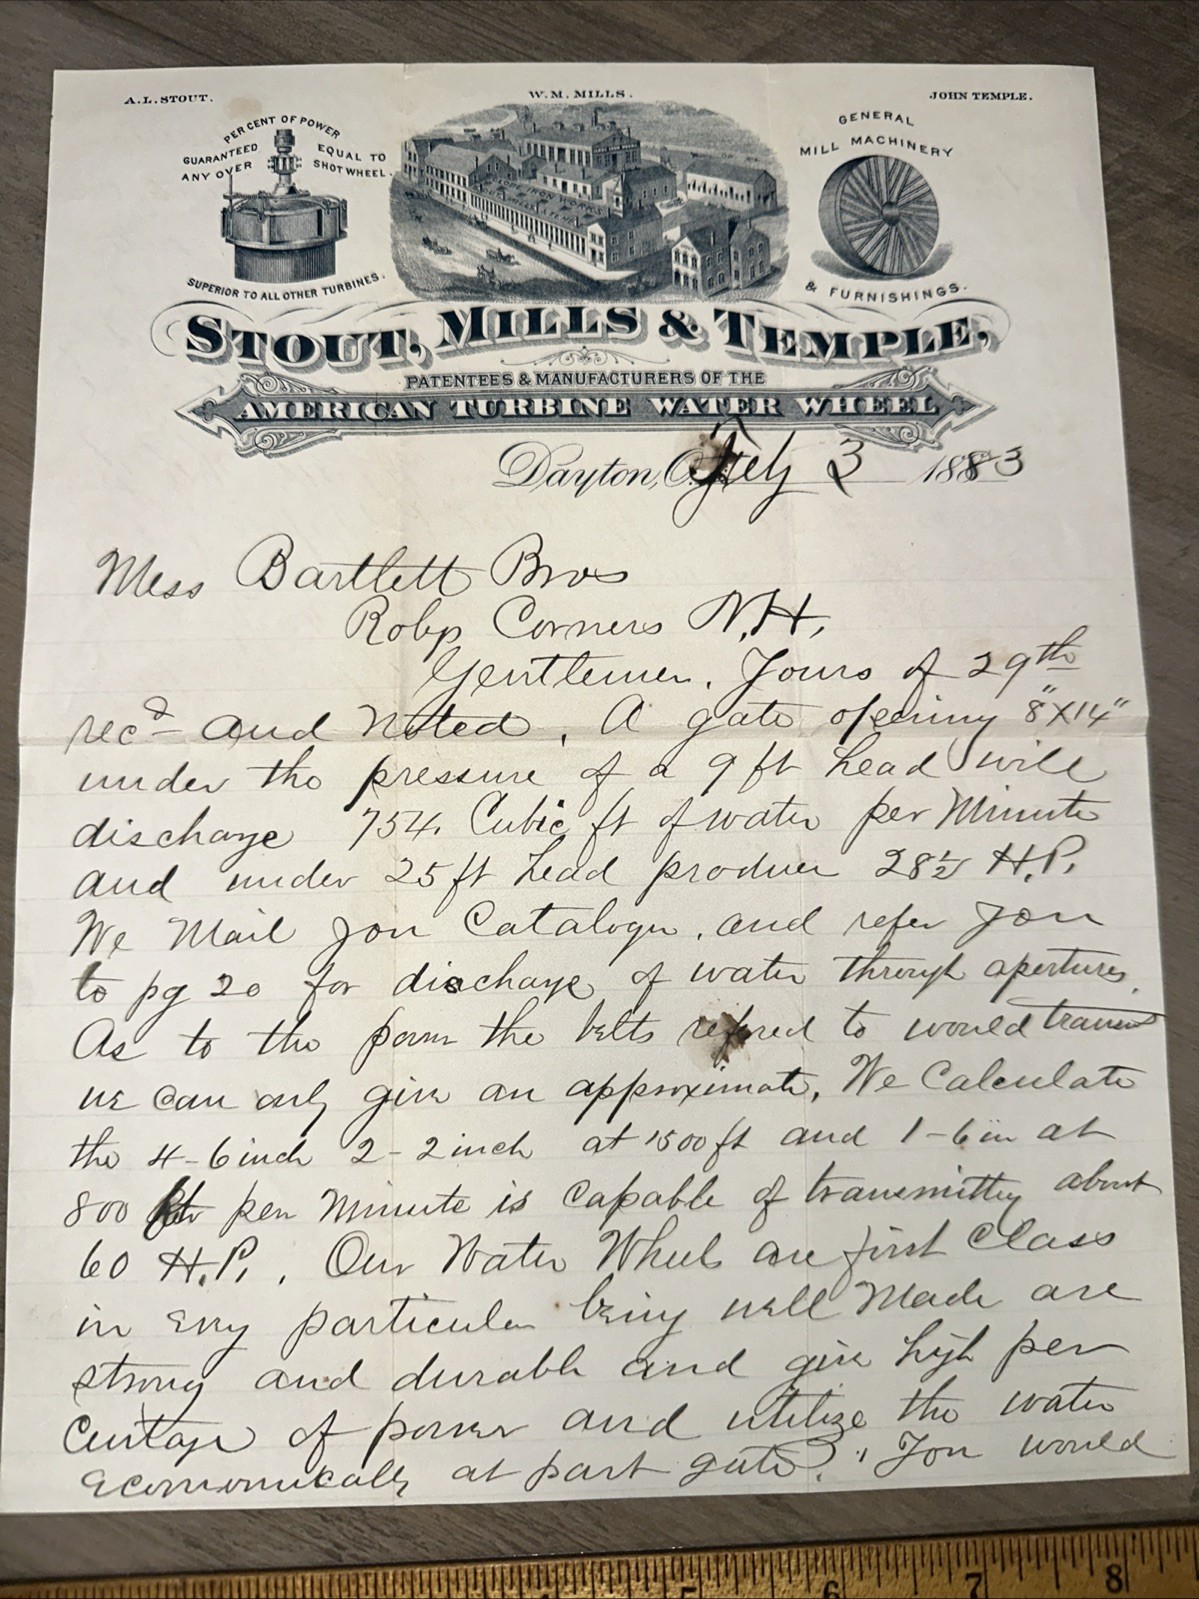 A.L. STOUT.
W.M. MILLS.
JOHN TEMPLE.
PER CENT OF POWER
GUARANTEED EQUAL TO
ANY OVER SHOT WHEEL.
SUPERIOR TO ALL OTHER TURBINES.
GENERAL
MILL MACHINERY
& FURNISHINGS.
STOUT, MILLS & TEMPLE,
PATENTEES & MANUFACTURERS OF THE
AMERICAN TURBINE WATER WHEEL
Dayton, O. 3 1883
Mess Bartlett Bros
Robys Corners N.H,
Gentlemen, Yours of 29th
recd and Noted. A gate opening 8"X14"
under the pressure of a 9 ft head will
discharge 754. Cubic ft of water per Minute
and under 25 ft head produce 28½ H.P.
We Mail you Catalogue, and refer you
to pg 20 for discharge of water through apertures.
As to the power the belts refered to would transmit
we can only give an approximate, We Calculate
the 4-6 inch 2-2 inch at 1500 ft and 1-6 in at
800 ft per Minute is capable of transmitting about
60 H.P., Our Water Wheels are first Class
in every particular being well Made are
strong and durable and give high per
Centage of power and utilize the water
economically at part gate. You would
5 6 7 8